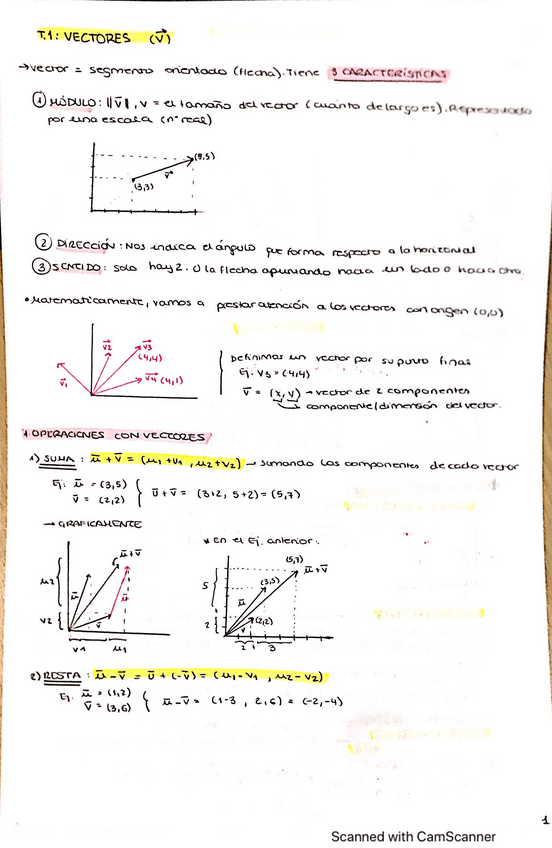 T.1: VECTORES (v⃗)
→ vector = segmento orientado (flecha). Tiene 3 CARACTERÍSTICAS
① MÓDULO: ||v⃗||, v = el tamaño del vector (cuánto de largo es). Representado
por una escala (nº real)
(8,5)
v⃗
(3,3)
② DIRECCIÓN: Nos indica el ángulo que forma respecto a la horizontal
③ SENTIDO: solo hay 2. O la flecha apuntando hacia un lado o hacia otro.
• Matemáticamente, vamos a prestar atención a los vectores con origen (0,0)
v⃗2 v⃗3
(4,4)
v⃗1 v⃗4 (4,1)
Definimos un vector por su punto final
Ej: v3 = (4,4)
v⃗ = (x, y) → vector de 2 componentes
componente/dimensión del vector.
1 OPERACIONES CON VECTORES
1) SUMA: u⃗ + v⃗ = (u1 + v1, u2 + v2) → sumando las componentes de cada vector
Ej: u⃗ = (3,5)
v⃗ = (2,2) { u⃗ + v⃗ = (3+2, 5+2) = (5,7)
→ GRÁFICAMENTE
u⃗ + v⃗
u2 u⃗ u⃗
v2 v⃗
v1 u1
* En el Ej. anterior:
(5,7)
u⃗ + v⃗
5 (3,5)
u⃗
2 v⃗ (2,2)
2 3
2) RESTA: u⃗ - v⃗ = u⃗ + (-v⃗) = (u1 - v1, u2 - v2)
Ej: u⃗ = (1,2)
v⃗ = (3,6) { u⃗ - v⃗ = (1-3, 2,6) = (-2,-4)
1
Scanned with CamScanner